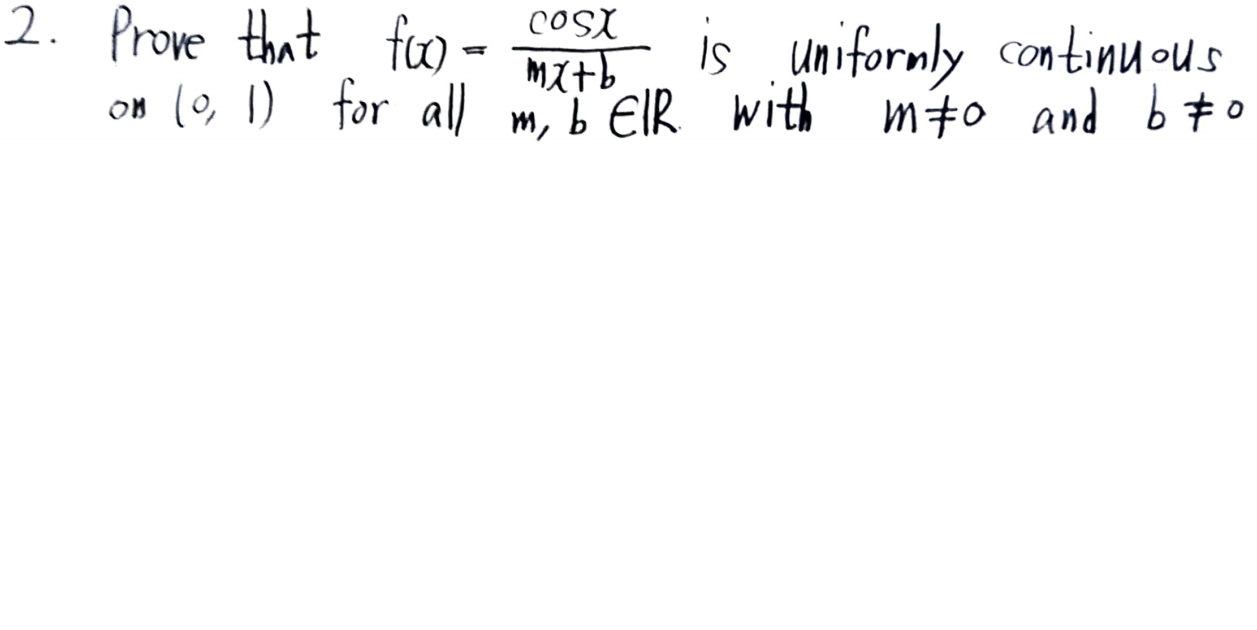 2. Prove that f(x) = \frac{cosx}{mx+b} is uniformly continuous
on (0, 1) for all m, b ∈ ℝ with m ≠ 0 and b ≠ 0